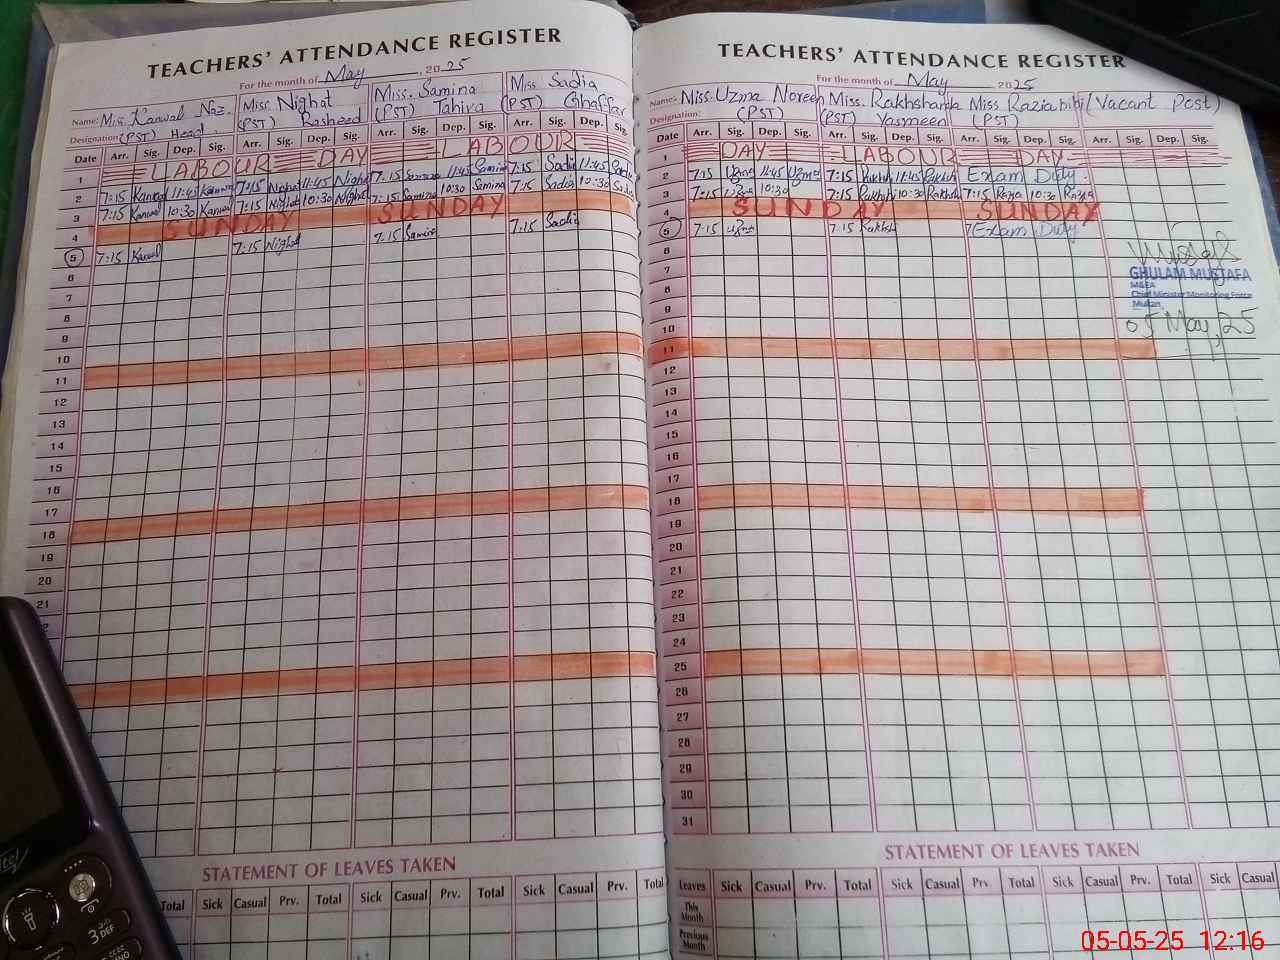 TEACHERS' ATTENDANCE REGISTER
For the month of May, 2025
Name: Miss. Kanwal Naz. Miss. Nighat Rasheed Miss. Samina Tahira Miss Sadia Ghaffar
Designation: (PST) Head. (PST) (PST) (PST)
Date Arr. Sig. Dep. Sig. Arr. Sig. Dep. Sig. Arr. Sig. Dep. Sig. Arr. Sig. Dep. Sig.
1 LABOUR DAY LABOUR
2 7:15 Kanwal 11:45 Kanwal 7:15 Nighat 11:45 Nighat 7:15 Samina 11:45 Samina 7:15 Sadia 11:45 Sadia
3 7:15 Kanwal 10:30 Kanwal 7:15 Nighat 10:30 Nighat 7:15 Samina 10:30 Samina 7:15 Sadia 10:30 Sadia
4 SUNDAY SUNDAY
5 7:15 Kanwal 7:15 Nighat 7:15 Samina 7:15 Sadia
6
7
8
9
10
11
12
13
14
15
16
17
18
19
20
21
STATEMENT OF LEAVES TAKEN
Total Sick Casual Prv. Total Sick Casual Prv. Total Sick Casual Prv. Total
itel
3 DEF
TEACHERS' ATTENDANCE REGISTER
For the month of May 2025
Name: Miss. Uzma Noreen Miss. Rakhshanda Yasmeen Miss Razia bibi (Vacant Post)
Designation: (PST) (PST) (PST)
Date Arr. Sig. Dep. Sig. Arr. Sig. Dep. Sig. Arr. Sig. Dep. Sig. Arr. Sig. Dep. Sig.
1 DAY LABOUR DAY
2 7:15 Uzma 11:45 Uzma 7:15 Rakhsh 11:45 Rakhsh Exam Duty.
3 7:15 Uzma 10:30 7:15 Rakhsh 10:30 Rakhsh 7:15 Razia 10:30 Razia
4 SUNDAY SUNDAY
5 7:15 Uzma 7:15 Rakhsh Exam Duty
6
7
8
9
10
11
12
13
14
15
16
17
18
19
20
21
22
23
24
25
26
27
28
29
30
31
GHULAM MUSTAFA
M&EA
Chief Minister Monitoring Force
Multan.
05 May, 25
STATEMENT OF LEAVES TAKEN
Leaves Sick Casual Prv. Total Sick Casual Prv. Total Sick Casual Prv. Total Sick Casual
This Month
Previous Month
05-05-25 12:16